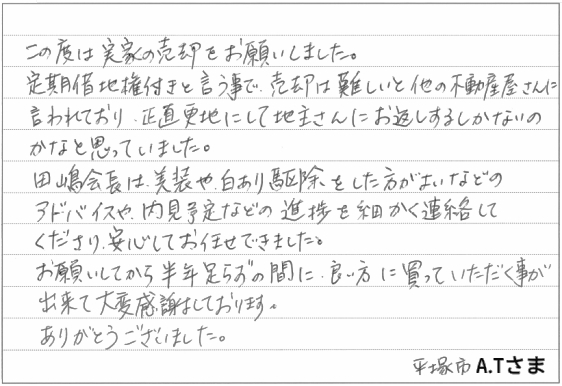 この度は実家の売却をお願いしました。
定期借地権付きと言う事で、売却は難しいと他の不動産屋さんに
言われており、正直更地にして地主さんにお返しするしかないの
かなと思っていました。
田嶋会長は、美装や、白あり駆除をした方がよいなどの
アドバイスや、内見予定などの進捗を細かく連絡して
くださり、安心してお任せできました。
お願いしてから半年足らずの間に、良い方に買っていただく事が
出来て大変感謝しております。
ありがとうございました。
平塚市 A.Tさま